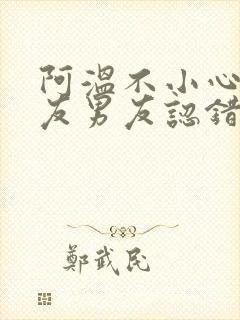 阿溫不小心
友男友認錯
鄭武民